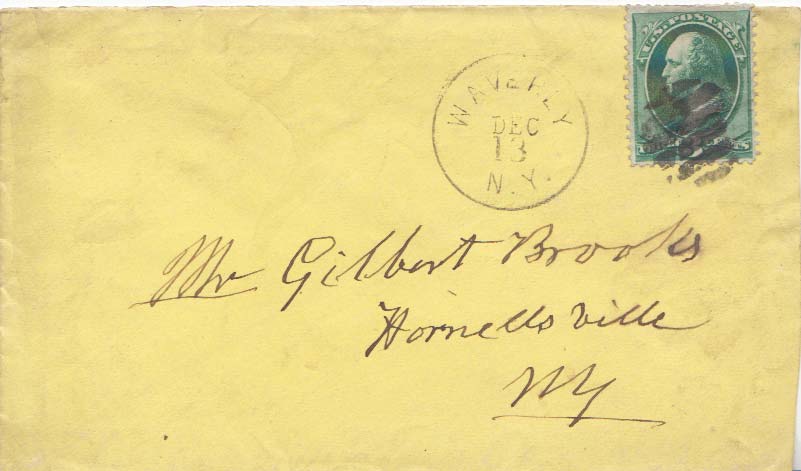 U.S. POSTAGE
WAVERLY
DEC
13
N.Y.
Mr Gilbert Brooks
Hornellsville
NY